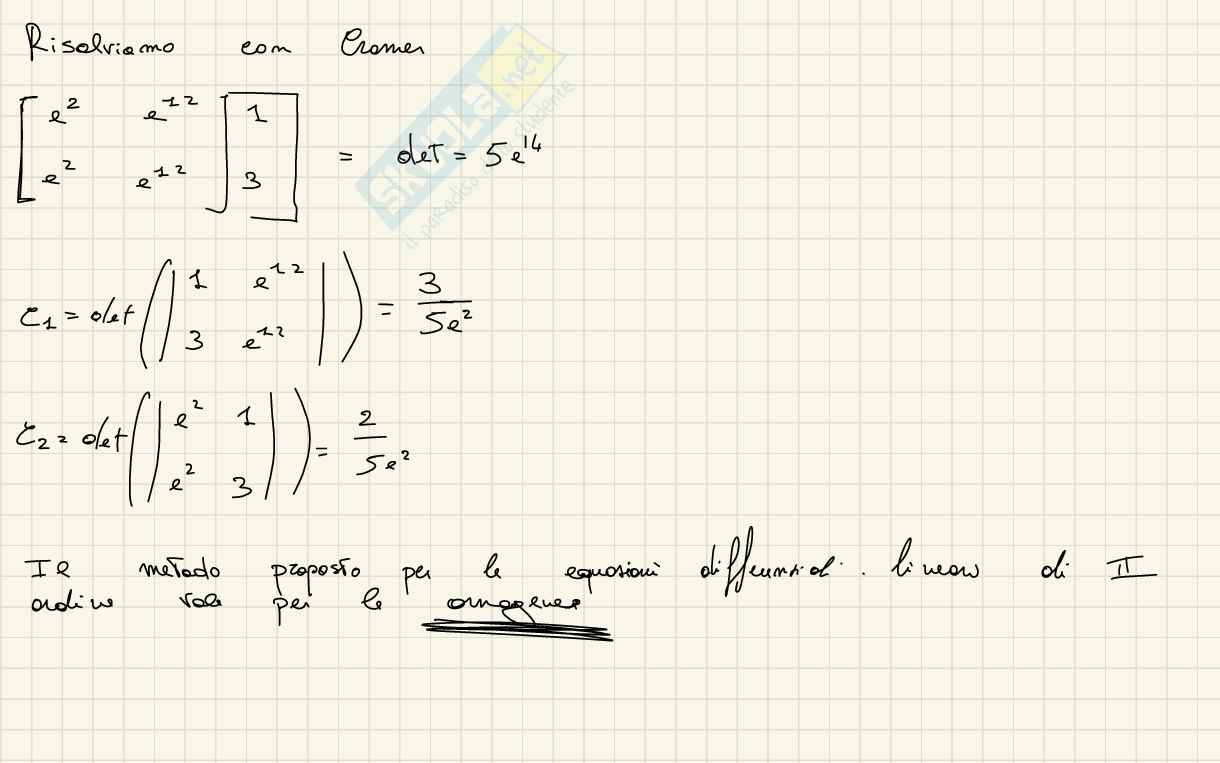 Risolviamo con Cramer
[ e² e¹² ] [ 1
e² e¹² ] 3 ] = det = 5e¹⁴
C₁ = det ( | 1 e¹² | ) = 3 / 5e²
3 e¹²
C₂ = det ( | e² 1 | ) = 2 / 5e²
e² 3
Il metodo proposto per le equazioni differenziali lineari di II
ordine vale per le omogenee
SKUOLA.net
il paradiso dello studente